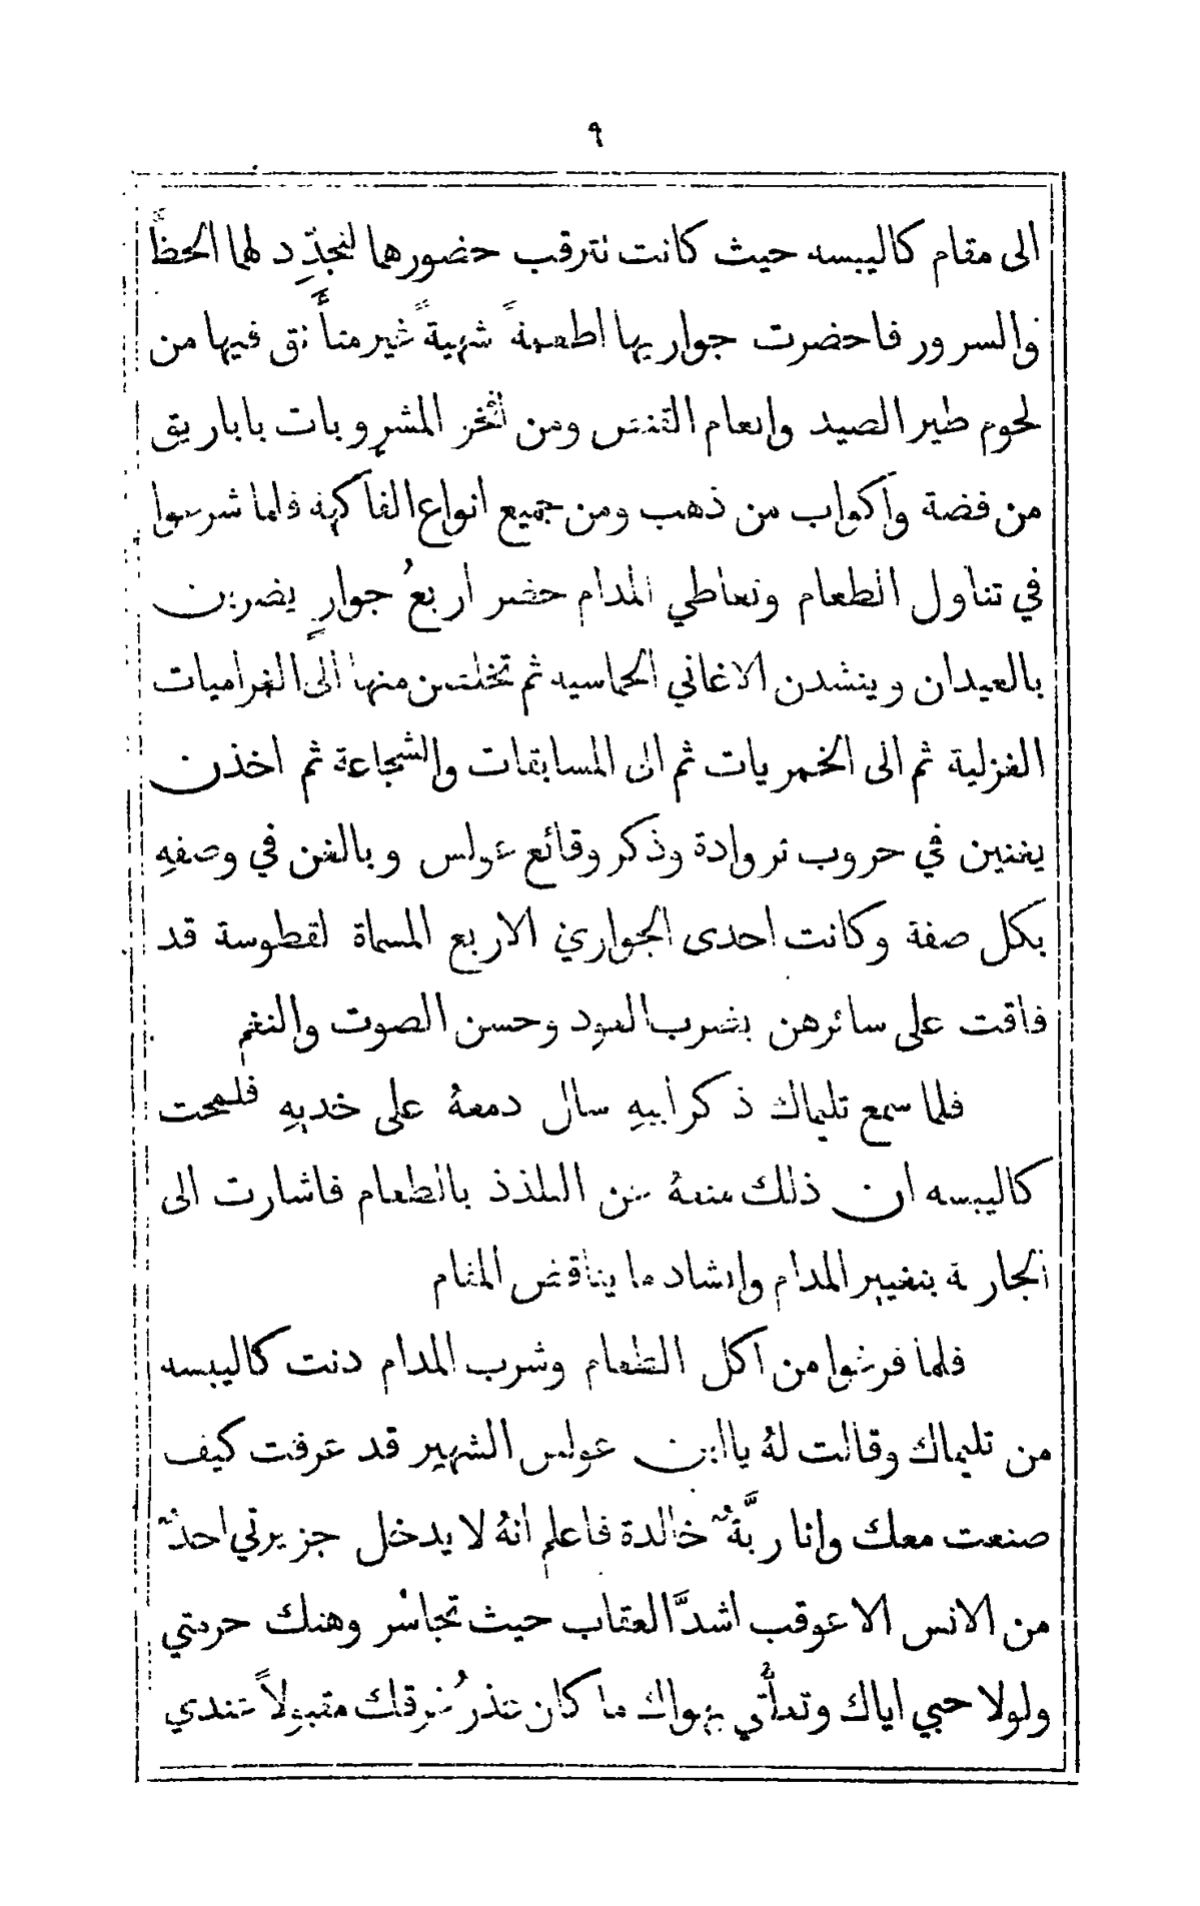 ٩
الى مقام كاليبسه حيث كانت تترقب حضورهما لتجدّد لهما الحظَّ
والسرور فاحضرت جواريها اطعمةً شهيةً غير متأنق فيها من
لحوم طير الصيد وانعام القنص ومن أفخر المشروبات باباريق
من فضة واكواب من ذهب ومن جميع انواع الفاكهة فلما شرعوا
في تناول الطعام وتعاطي المدام حضر اربعُ جوارٍ يضربن
بالعيدان وينشدن الاغاني الحماسيه ثم تخلصن منها الى الغراميات
الغزلية ثم الى الخمريات ثم الى المسابقات والشجاعة ثم اخذن
يغنين في حروب تروادة وذكر وقائع عولس وبالغن في وصفهِ
بكل صفة وكانت احدى الجواري الاربع المسماة لقطوسة قد
فاقت على سائرهن بضرب العود وحسن الصوت والنغم
فلما سمع تليماك ذكر ابيهِ سال دمعهُ على خديهِ فلمحت
كاليبسه ان ذلك منعهُ من التلذذ بالطعام فاشارت الى
الجارية بتغيير المدام وانشاد ما يناقض المقام
فلما فرغوا من اكل الطعام وشرب المدام دنت كاليبسه
من تليماك وقالت لهُ ياابن عولس الشهير قد عرفت كيف
صنعت معك وانا ربَّةٌ خالدة فاعلم انهُ لا يدخل جزيرتي احدٌ
من الانس الا عوقب اشدَّ العقاب حيث تجاسر وهتك حرمتي
ولولا حبي اياك وتعلُّقي بهواك ما كان عذرُ غرقك مقبولاً عندي